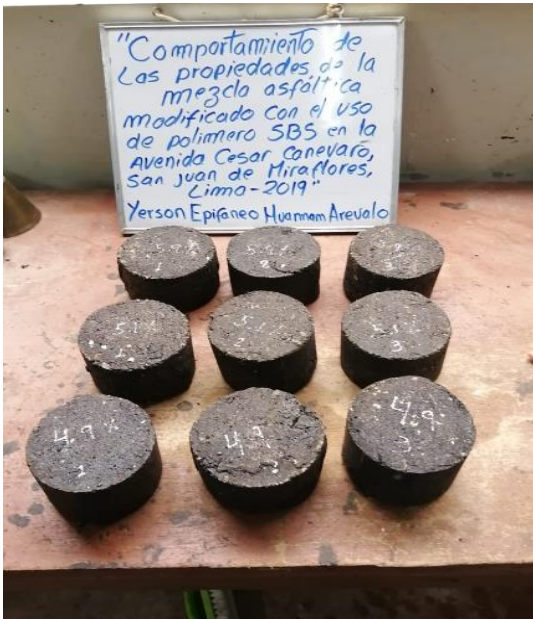 "Comportamiento de
Las propiedades de la
mezcla asfáltica
modificado con el uso
de polimero SBS en la
Avenida Cesar Canevaro,
San Juan de Miraflores,
Lima-2019"
Yerson Epifaneo Huamnam Arevalo
5.2%
1
5.2%
2
5.2%
3
5.1%
1
5.1%
2
5.1%
3
4.9%
1
4.9
2
4.9%
3